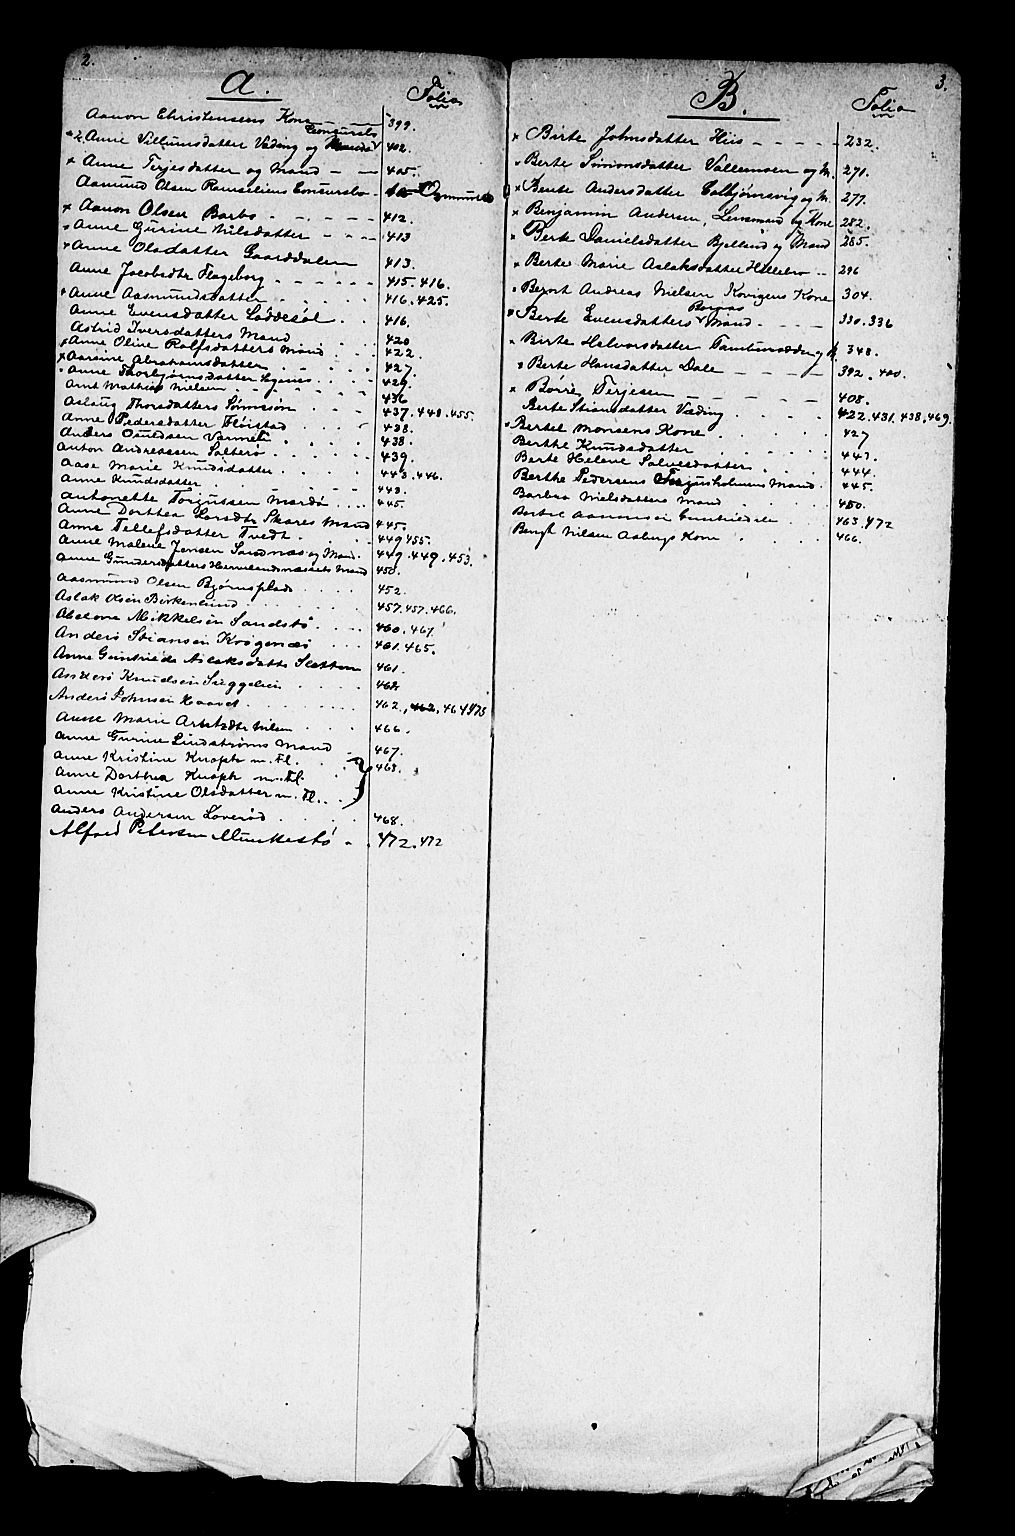 2.
A.
Folio
Aanon Christensens Kone
Concursbo 399.
Anne Villumsdatter Væding og 402.
Anne Terjesdatter og Mand 405.
Aamund Olsen Concursbo
Aanon Olsen Barbo 412.
Anne Gurine Nilsdatter 413
Anne Olsdatter Gaarddalen 413.
Anne Jacobsdtr Flageborg 415. 416.
Anne Aasmundsdatter 416. 425.
Anne Evensdatter Løddesøl 416.
Astrid Iversdatters Mand 420
Anne Oline Rolfsdatters Mand 422.
Aasine Abrahamsdatter 427.
Anne Thorbjørnsdatter 429.
Arnt Mathias Nielsen 436
Aslaug Thorsdatters 437. 448. 455.
Anne Pedersdatter Fløistad 438.
Anders 438.
Anton Andreassen Salterø 439.
Aase Marie Knudsdatter 443. 446.
Anne Knudsdatter 443.
Antonette Torjussen Mardø 445.
Anne Dorthea Larsdtr Skares Mand 445.
Anne Tellefsdatter Tvedt 449 455.
Anne Malene Jensen Sandnæs og Mand 449. 449. 453.
Anne Gundersdatters Mand 450.
Aasmund Olsen Bjørnsplads 452.
Aslak Olsen Birkenlund 457. 457. 466.
Abelone Mikkelsen Sandstø 460. 467.
Anders Stiansen Krøgenæs 461. 465.
Anne Guntriede Aslaksdatter Sletten 461.
Anders Knudsen
Anders Johnsen 462. 462. 464 475
Anne Marie Nilsen 466.
Anne Gurine Lindstrøms Mand 467.
Anne Kristine Knoph m. Fl. 468.
Anne Dorthea Knoph m. Fl.
Anne Kristine Olsdatter m. Fl.
Anders Andersen Løverød 468.
Alfred Petersen Munkestø 472. 472
3.
B.
Folio
Birte Johnsdatter Hiis 232.
Berte Simonsdatter Vallemoen og M. 271.
Bente Andersdatter Colbjørnsvig og M. 277.
Benjamin Andersen, Lensmand og Kone 282.
Berte Danielsdatter Bjelland og Mand 285.
Berte Marie Aslaksdatter Hillebo 296
Andreas Nielsen Kovigens Kone 304.
Berte Evensdatters Mand 330. 336
Birte Halvorsdatter 348.
Berte Hansdatter Dale 392. 400.
Børre Terjesen 408.
Berte Stiansdatter Væding 422. 431. 438. 469.
Bertel Monsens Kone 427
Berthe Knudsdatter 443.
Berte Helene Salvesdatter 444.
Berthe Pedersens Torjusholmens Mand 445.
Barbra Nielsdatters Mand 450.
463. 472
Bengt Nilsen Asbergs Kone 466.